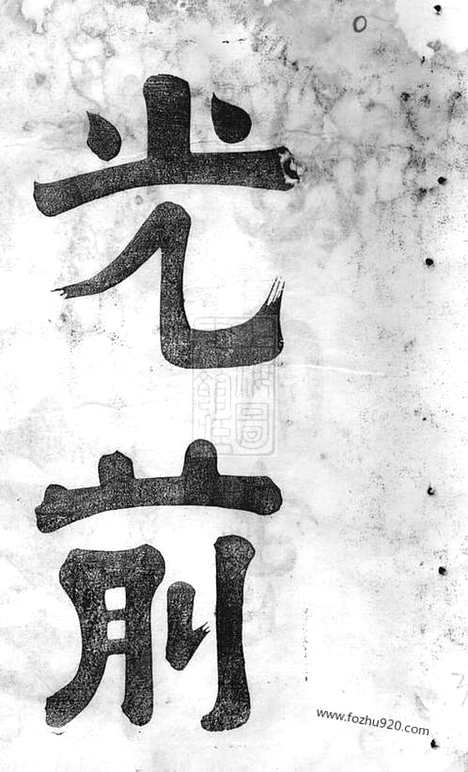 光前
www.fozhu920.com